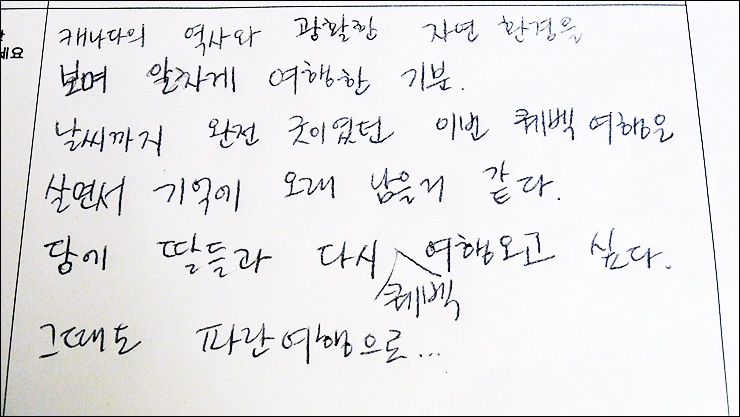 세요
캐나다의 역사와 광활한 자연 환경을
보며 알차게 여행한 기분.
날씨까지 완전 굿이였던 이번 퀘벡 여행은
살면서 기억에 오래 남을거 같다.
담에 딸들과 다시 퀘벡 여행오고 싶다.
그때도 파란여행으로...